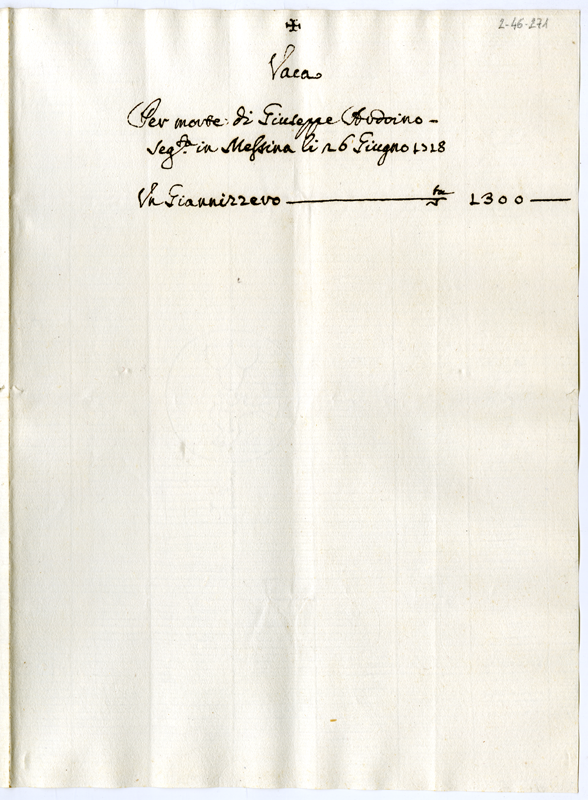 2-46-271
✠
Vaca
Per morte di Giuseppe Ardoino -
seg.ta in Messina li 26 Giugno 1718
Un Giannizzero 1300